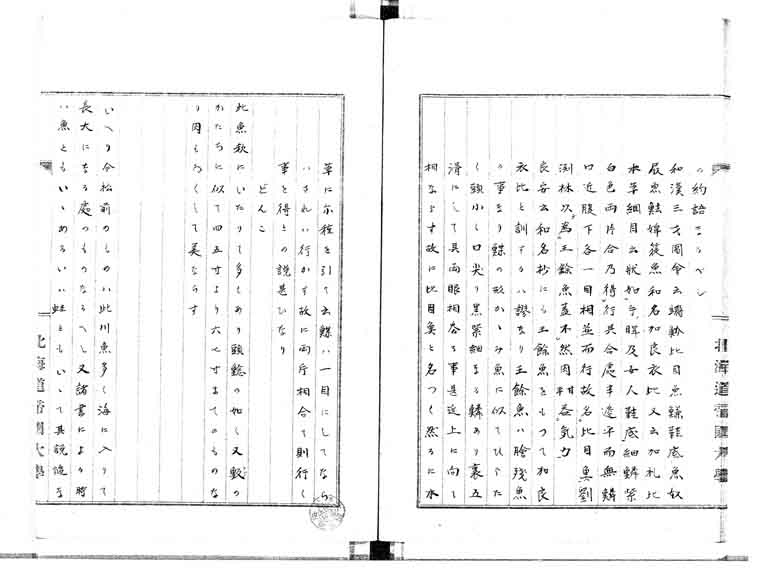 の約語なるべし
和漢三才図会云 比目魚鰜鞋底魚奴
屩魚鮭婢簁魚和名加良衣比又云加礼比
本草細目云状如牛脾及女人鞋底細鱗紫
白色両片合乃得行其合處半邊平而無鱗
口近腹下各一目相並而行故名比目魚劉
渕林以為王餘魚蓋不然肉甘益気力
良安云和名抄にも王餘魚をもつて加良
衣比と訓するハ謬なり王餘魚ハ膾残魚
の事なり鰈の形かゝみ魚に似てひらた
く頭小く口尖り黒紫細なる鱗あり裏五
滑にして其両眼相並る事是近上に向て
相ならす故に比目魚と名つく然るに水
草に尓雅を引て云鰈ハ一目にしてなら
ハされハ行かす故に両片相合て則行く
事を得との説是ひなり
どんこ
此魚秋にいたりて多くあり頭鯰の如し又鮫の
かたちに似て四五寸より六七寸まてのものな
り肉もろくして美ならす
いへり今松前のものハ此川魚多く海に入りて
長大になる處のものなるへし又諸書により時
ハ魚ともいゝあるいハ鮭ともいゝて其説慥な
北海道帝國大學
北海道帝國大學